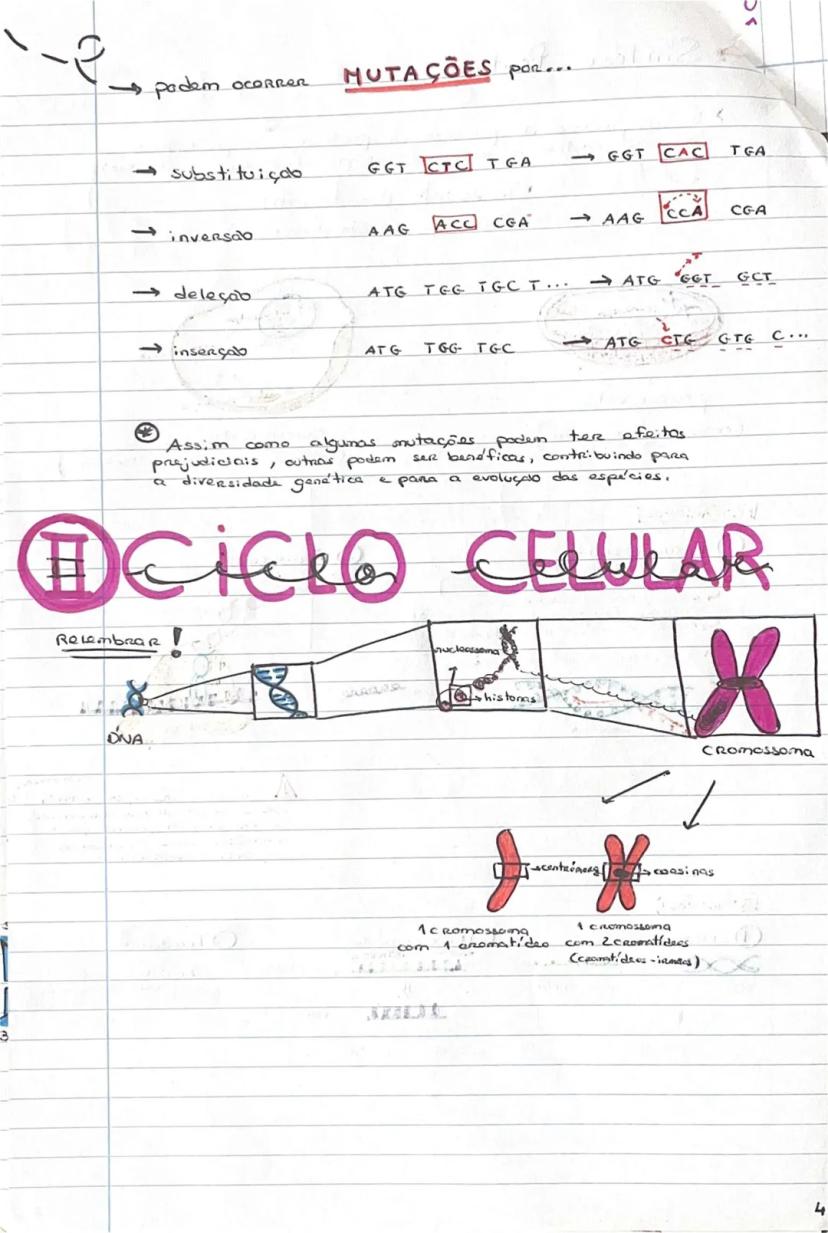 → podem ocorrer MUTAÇÕES por...
→ substituição GGT CTC TGA → GGT CAC TGA
→ inversão AAG ACC CGA → AAG CCA CGA
→ deleção ATG TGG TGC T... → ATG GGT GCT
T
→ inserção ATG TGG TGC → ATG CTG GTG C...
* Assim como algumas mutações podem ter efeitos
prejudiciais, outras podem ser benéficas, contribuindo para
a diversidade genética e para a evolução das espécies.
II CICLO CELULAR
ciclo celular
Relembrar!
nucleossoma
→ histonas
DNA
CROMOSSOMA
→ centrómero
→ coesinas
1 cromossoma
com 1 cromatídeo
1 cromossoma
com 2 cromatídeos
(cromatídeos-irmãos)
3
4